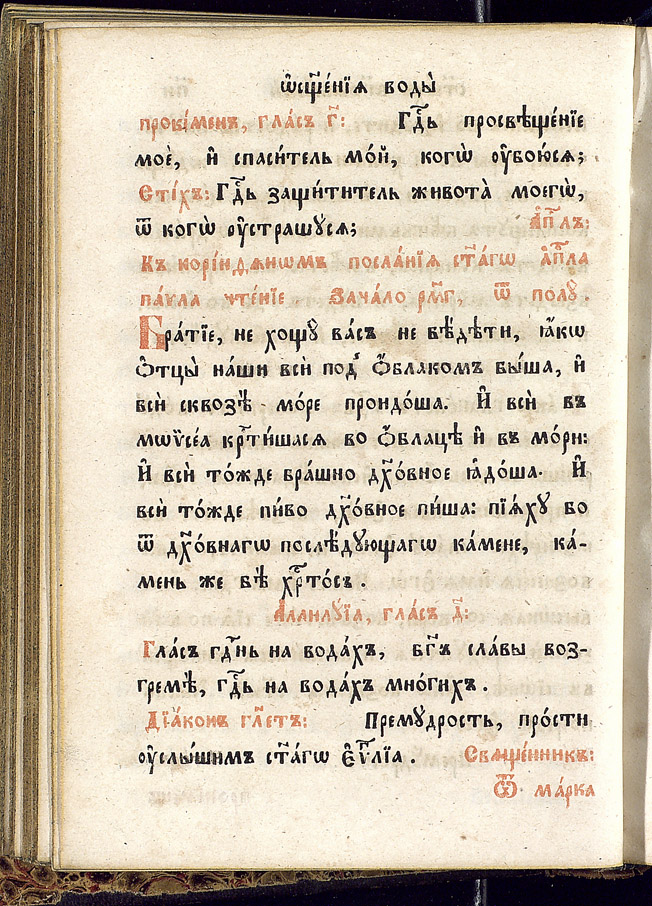 ѡ҆сщ҃е́нїѧ воды̀
проки́менъ, гла́съ г҃: Гдⷭ҇ь просвѣще́нїе
моѐ, и҆ спаси́тель мо́й, когѡ̀ ᲂу҆бою́сѧ;
Сті́хъ: Гдⷭ҇ь защи́титель живота̀ моегѡ̀,
ѿ когѡ̀ ᲂу҆страшꙋ́сѧ; А҆пⷭ҇лъ:
Къ корі́нѳѧнѡмъ посла́нїѧ ст҃а́гѡ а҆пⷭ҇ла
па́ѵла чте́нїе Зача́ло рм҃г, ѿ полꙋ̀.
Бра́тїе, не хощꙋ̀ ва́съ не вѣ́дѣти, ꙗ҆́кѡ
Ѻ҆тцы̀ на́ши всѝ под̾ Ѻ҆́блакомъ бы́ша, и҆
всѝ сквозѣ̀ мо́ре проидо́ша. И҆ всѝ въ
мѡѷсе́а крⷭ҇ти́шасѧ во Ѻ҆́блацѣ и҆ въ мо́ри:
И҆ всѝ то́жде бра́шно дх҃о́вное ꙗ҆до́ша. И҆
всѝ то́жде пи́во дх҃о́вное пи́ша: пїѧ́хꙋ бо
ѿ дх҃о́внагѡ послѣ́дꙋющагѡ ка́мене, ка́-
мень же бѣ̀ хрⷭ҇то́съ.
А҆ллилꙋ́їа, гла́съ д҃:
Гла́съ гдⷭ҇нь на вода́хъ, бг҃ъ сла́вы воз-
гремѣ̀, гдⷭ҇ь на вода́хъ мно́гихъ.
Дїа́конъ гл҃етъ: Премꙋ́дрость, про́сти
ᲂу҆слы́шимъ ст҃а́гѡ є҆ѵⷢ҇лїа. Свѧще́нникъ:
Ѿ ма́рка